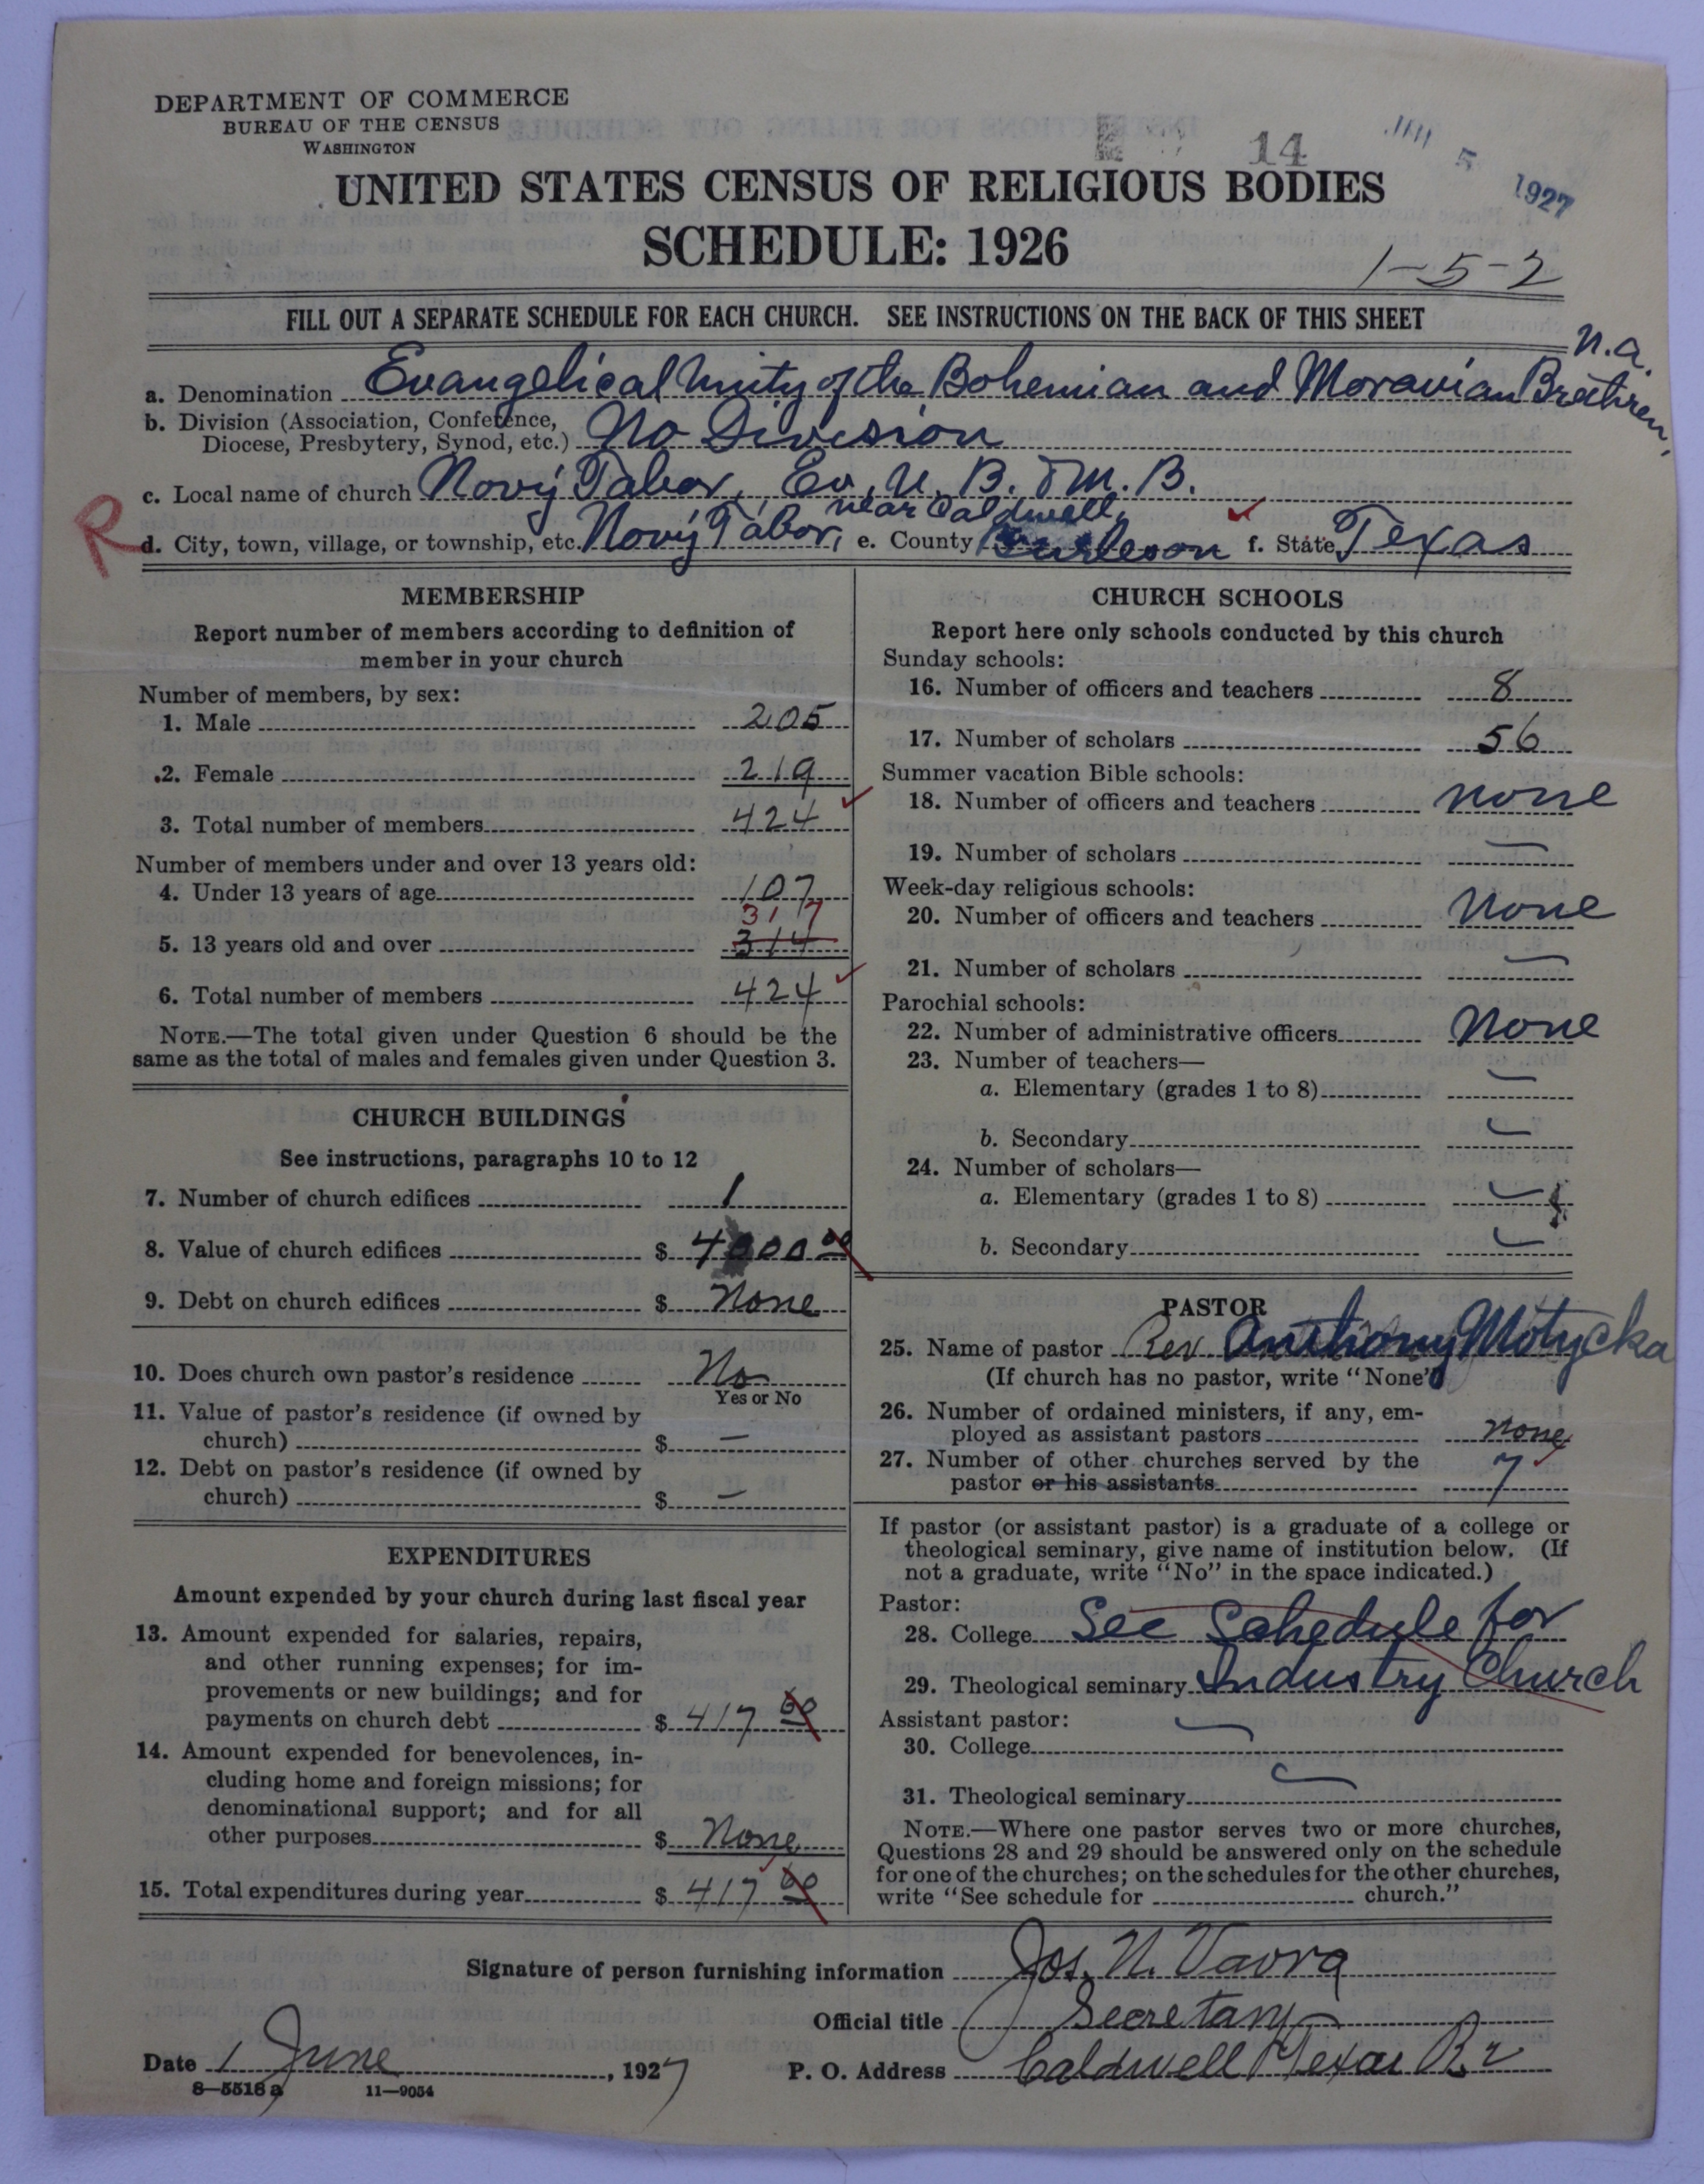 DEPARTMENT OF COMMERCE
BUREAU OF THE CENSUS
WASHINGTON
14
JAN 5 1927
UNITED STATES CENSUS OF RELIGIOUS BODIES
SCHEDULE: 1926
1-5-2
FILL OUT A SEPARATE SCHEDULE FOR EACH CHURCH. SEE INSTRUCTIONS ON THE BACK OF THIS SHEET
a. Denomination Evangelical Unity of the Bohemian and Moravian Brethren, N.A.
b. Division (Association, Conference,
Diocese, Presbytery, Synod, etc.) No Division
c. Local name of church Nový Tabor, Ev. U. B. & M. B.
near Caldwell,
R d. City, town, village, or township, etc. Nový Tábor, e. County Burleson f. State Texas
MEMBERSHIP
Report number of members according to definition of
member in your church
Number of members, by sex:
1. Male 205
2. Female 219
3. Total number of members 424
Number of members under and over 13 years old:
4. Under 13 years of age 107
317
5. 13 years old and over 314
6. Total number of members 424
NOTE.—The total given under Question 6 should be the
same as the total of males and females given under Question 3.
CHURCH BUILDINGS
See instructions, paragraphs 10 to 12
7. Number of church edifices 1
8. Value of church edifices $ 4000 00
9. Debt on church edifices $ None
10. Does church own pastor's residence No
Yes or No
11. Value of pastor's residence (if owned by
church) $ —
12. Debt on pastor's residence (if owned by
church) $ —
EXPENDITURES
Amount expended by your church during last fiscal year
13. Amount expended for salaries, repairs,
and other running expenses; for im-
provements or new buildings; and for
payments on church debt $ 417 00
14. Amount expended for benevolences, in-
cluding home and foreign missions; for
denominational support; and for all
other purposes $ None
15. Total expenditures during year $ 417 00
CHURCH SCHOOLS
Report here only schools conducted by this church
Sunday schools:
16. Number of officers and teachers 8
17. Number of scholars 56
Summer vacation Bible schools:
18. Number of officers and teachers none
19. Number of scholars —
Week-day religious schools:
20. Number of officers and teachers None
21. Number of scholars —
Parochial schools:
22. Number of administrative officers None
23. Number of teachers—
a. Elementary (grades 1 to 8) —
b. Secondary —
24. Number of scholars—
a. Elementary (grades 1 to 8) —
b. Secondary —
PASTOR
25. Name of pastor Rev Anthony Motycka
(If church has no pastor, write "None")
26. Number of ordained ministers, if any, em-
ployed as assistant pastors none
27. Number of other churches served by the
pastor or his assistants 7
If pastor (or assistant pastor) is a graduate of a college or
theological seminary, give name of institution below. (If
not a graduate, write "No" in the space indicated.)
Pastor:
28. College See Schedule for
29. Theological seminary Industry Church
Assistant pastor:
30. College —
31. Theological seminary —
NOTE.—Where one pastor serves two or more churches,
Questions 28 and 29 should be answered only on the schedule
for one of the churches; on the schedules for the other churches,
write "See schedule for church."
Signature of person furnishing information Jos. N. Vavra
Official title Secretary
Date 1 June, 1927 P. O. Address Caldwell Texas R. 2
8—5518 a 11—9054